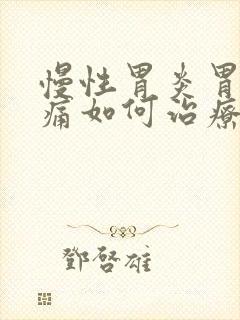 慢性胃炎胃
痛如何治療
鄧啓雄